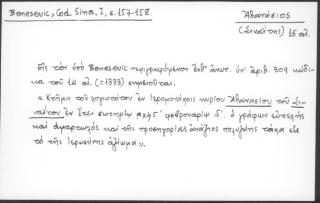 Benesevic, Cod. Sina, I, σ. 157-158
Ἀθανάσιος
(Σιναΐτης) 16 αἰ.
Εἰς τὸν ὑπὸ Benesevic περιγραφόμενον ἔνθ' ἀνωτ. ὑπ' ἀριθ. 309 κώδι-
κα τοῦ 14 αἰ. (=1333) σημειοῦται.
"Κτῆμα τοῦ λογιωτάτου ἐν ἱερομονάχοις κυρίου Ἀθανασίου τοῦ Σι-
ναΐτου ἐν ἔτει σωτηρίῳ αχ45 φεβρουαρίῳ ιδ'. ὁ γράφων εὐτελὴς
καὶ ἁμαρτωλὸς καὶ τῆς προσηγορίας ἀνάξιος πολυΐτης τάχα εἰς
τὸ τῆς ἱερωσύνης ἀξίωμα".